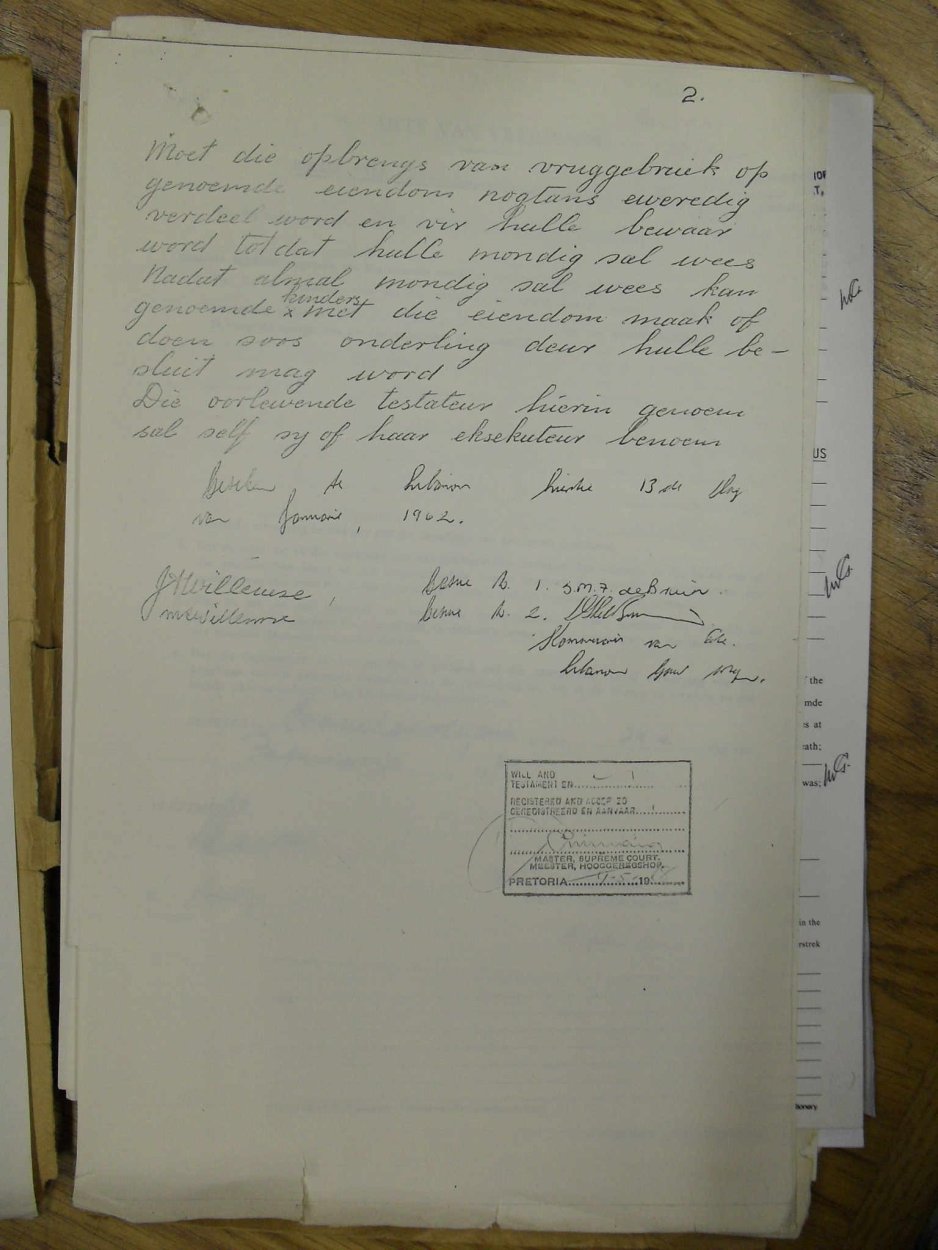 2.
Moet die opbrengs van vruggebruik op
genoemde eiendom nogtans eweredig
verdeel word en vir hulle bewaar
word totdat hulle mondig sal wees
Nadat almal mondig sal wees kan
genoemde kinders met die eiendom maak of
doen soos onderling deur hulle be-
sluit mag word
Die oorlewende testateur hierin genoem
sal self sy of haar eksekuteur benoem
te Lebanon hierdie 13de dag
van Januarie, 1962.
J H Willemse,
1. S.M.F. de Bruin
Willemse
2.
Kommissaris van Ede.
Lebanon Goud Myn.
WILL AND
TESTAMENT EN
REGISTERED AND ACCEPTED
GEREGISTREERD EN AANVAAR
MASTER, SUPREME COURT.
MEESTER, HOOGGEREGSHOF.
PRETORIA 19
T,
US
the
mde
s at
ath;
was;
in the
rstrek
tionery